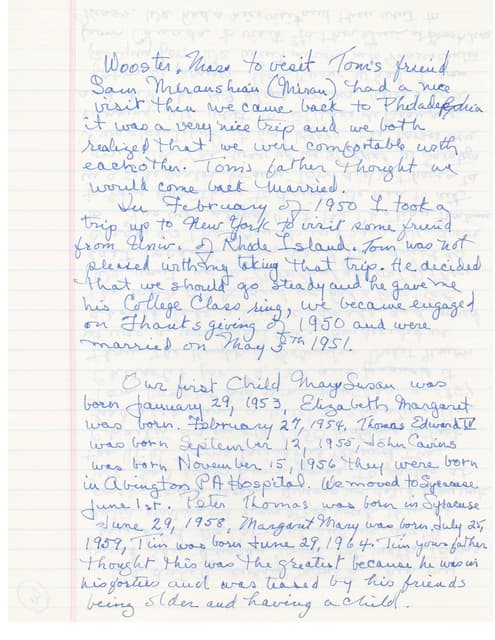 Wooster, Mass to visit Tom's friend
Sam Meranshian (Miran) had a nice
visit then we came back to Philadelphia
it was a very nice trip and we both
realized that we were comfortable with
eachother. Tom's father thought we
would come back married.
In February of 1950 I took a
trip up to New York to visit some friend
from Univ. of Rhode Island. Tom was not
pleased with my taking that trip. He decided
that we should go steady and he gave me
his College Class ring, we became engaged
on Thanksgiving of 1950 and were
married on May 5th 1951.
Our first Child Mary Susan was
born January 29, 1953, Elizabeth Margaret
was born February 27, 1954. Thomas Edward IV
was born September 12, 1955, John Cavins
was born November 15, 1956 they were born
in Abington PA Hospital. We moved to Syracuse
June 1st. Peter Thomas was born in Syracuse
June 29, 1958, Margaret Mary was born July 25,
1959, Tim was born June 29, 1964. Tim your father
thought this was the greatest because he was in
his forties and was teased by his friends
being older and having a child.